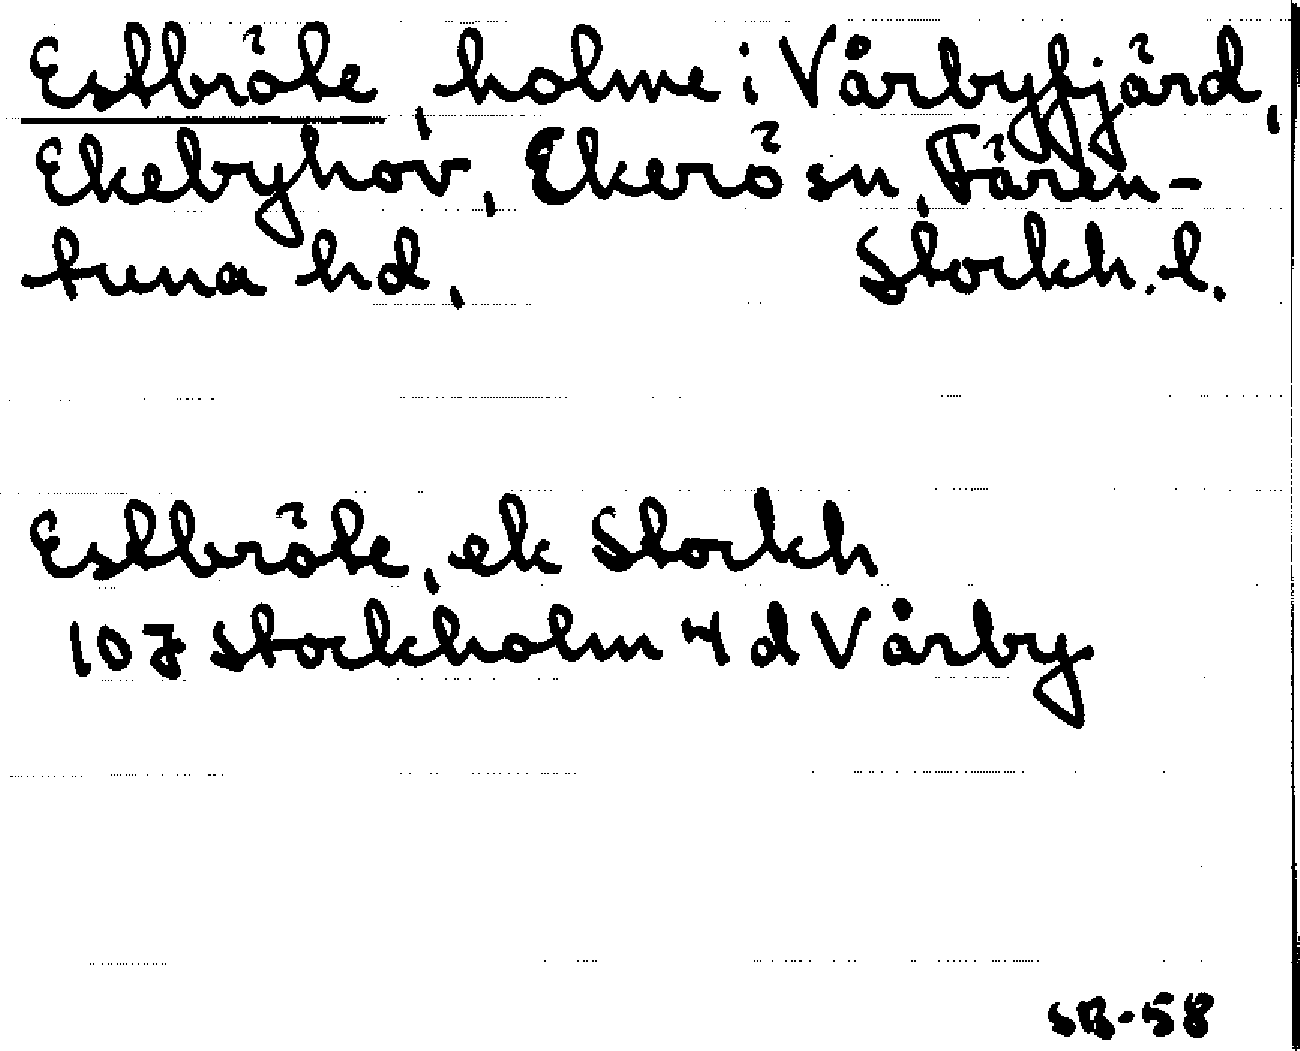 Estbröte, holme i Vårbyfjärd,
Ekebyhov, Ekerö sn, Fären-
tuna hd, Stockh. l.
Estbröte, ek Stockh
10 J Stockholm 4 d Vårby
SB-58